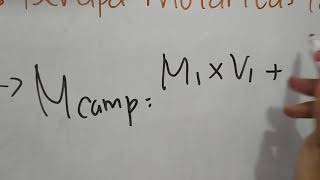 berapa Molaritas
→ M camp: M₁ x V₁ +